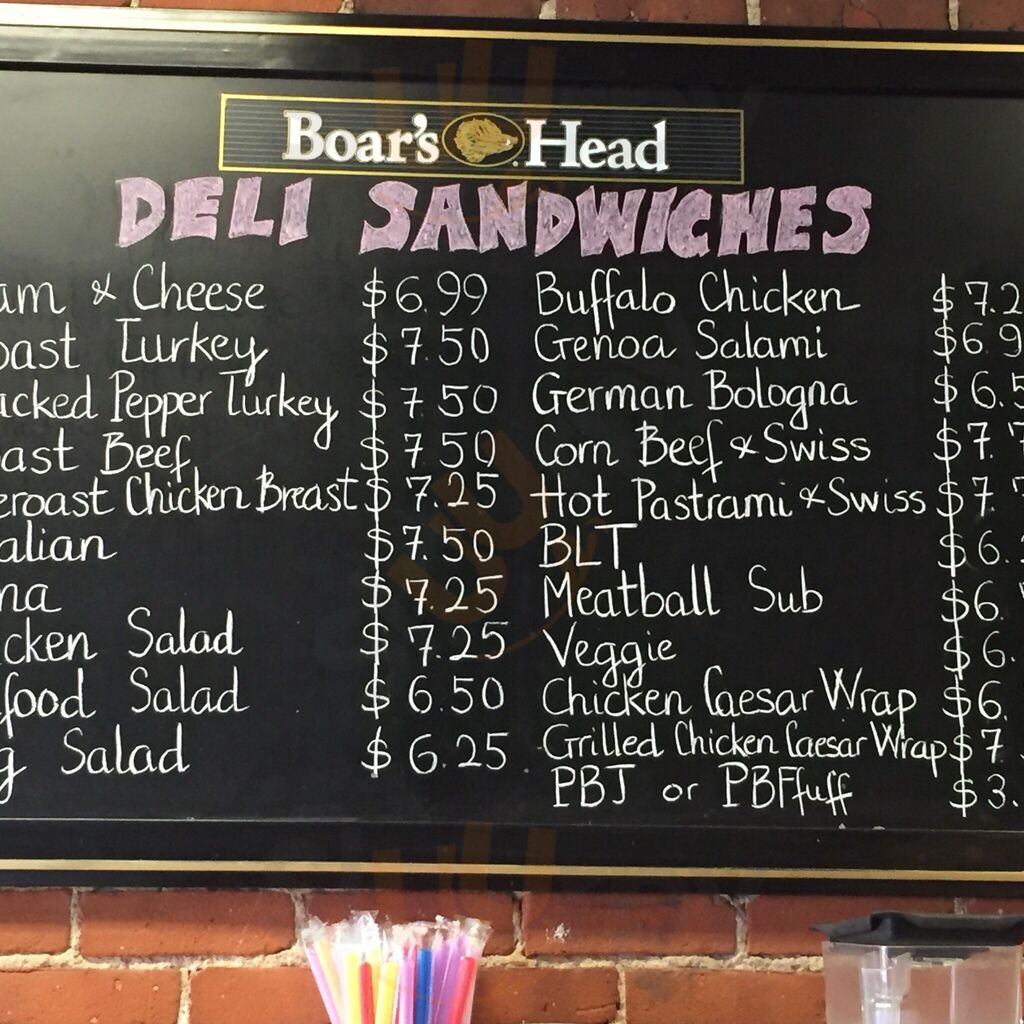 Boar's Head
DELI SANDWICHES
am & Cheese $6.99
oast Turkey $7.50
acked Pepper Turkey $7.50
oast Beef $7.50
eroast Chicken Breast $7.25
alian $7.50
na $7.25
icken Salad $7.25
food Salad $6.50
g Salad $6.25
Buffalo Chicken $7.2
Genoa Salami $6.9
German Bologna $6.5
Corn Beef & Swiss $7.7
Hot Pastrami & Swiss $7.7
BLT $6.
Meatball Sub $6.
Veggie $6.
Chicken Caesar Wrap $6.
Grilled Chicken Caesar Wrap $7
PBJ or PBFfuff $3.